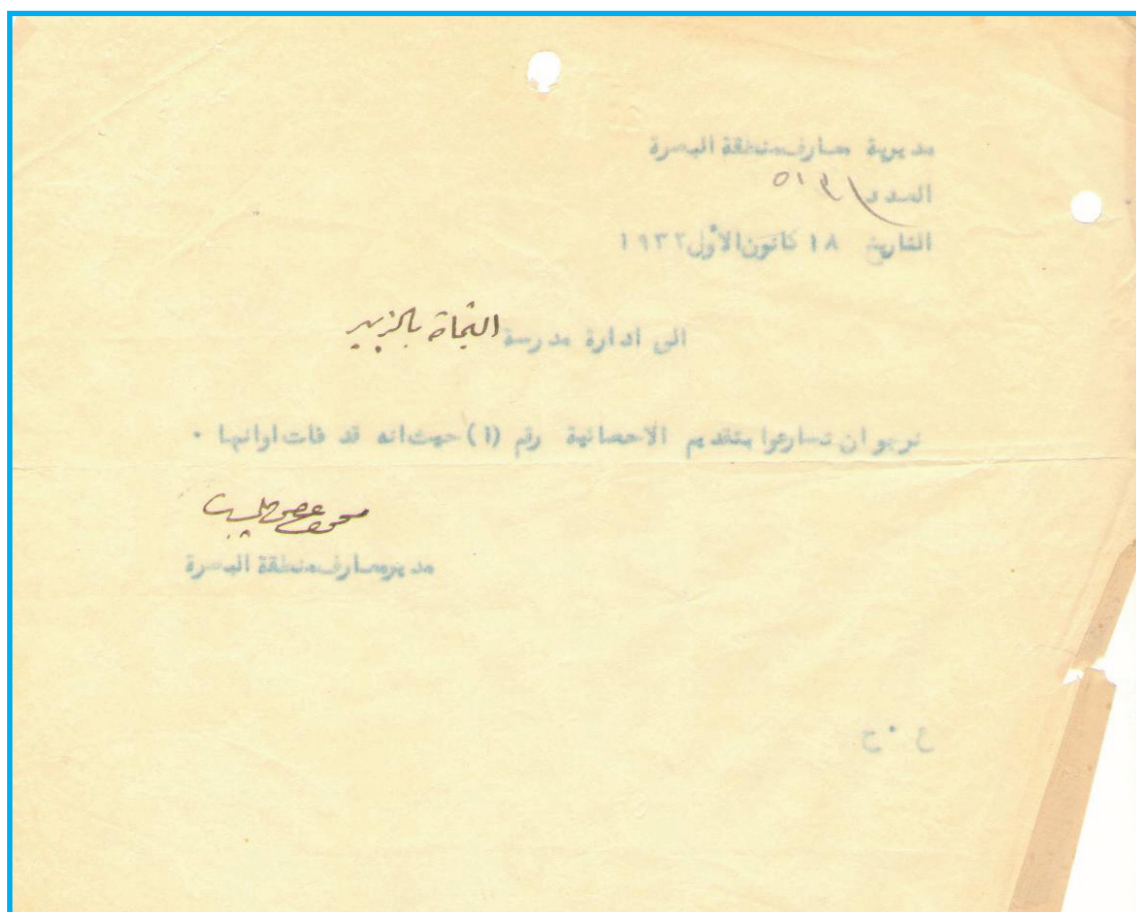 مديرية معارف منطقة البصرة
العدد
التاريخ ١٨ كانون الأول ١٩٣٢
الى ادارة مدرسة النجاة بالزبير
نرجو ان تسارعوا بتقديم الاحصائية رقم (١) حيث انه قد فات اوانها ٠
مدير معارف منطقة البصرة